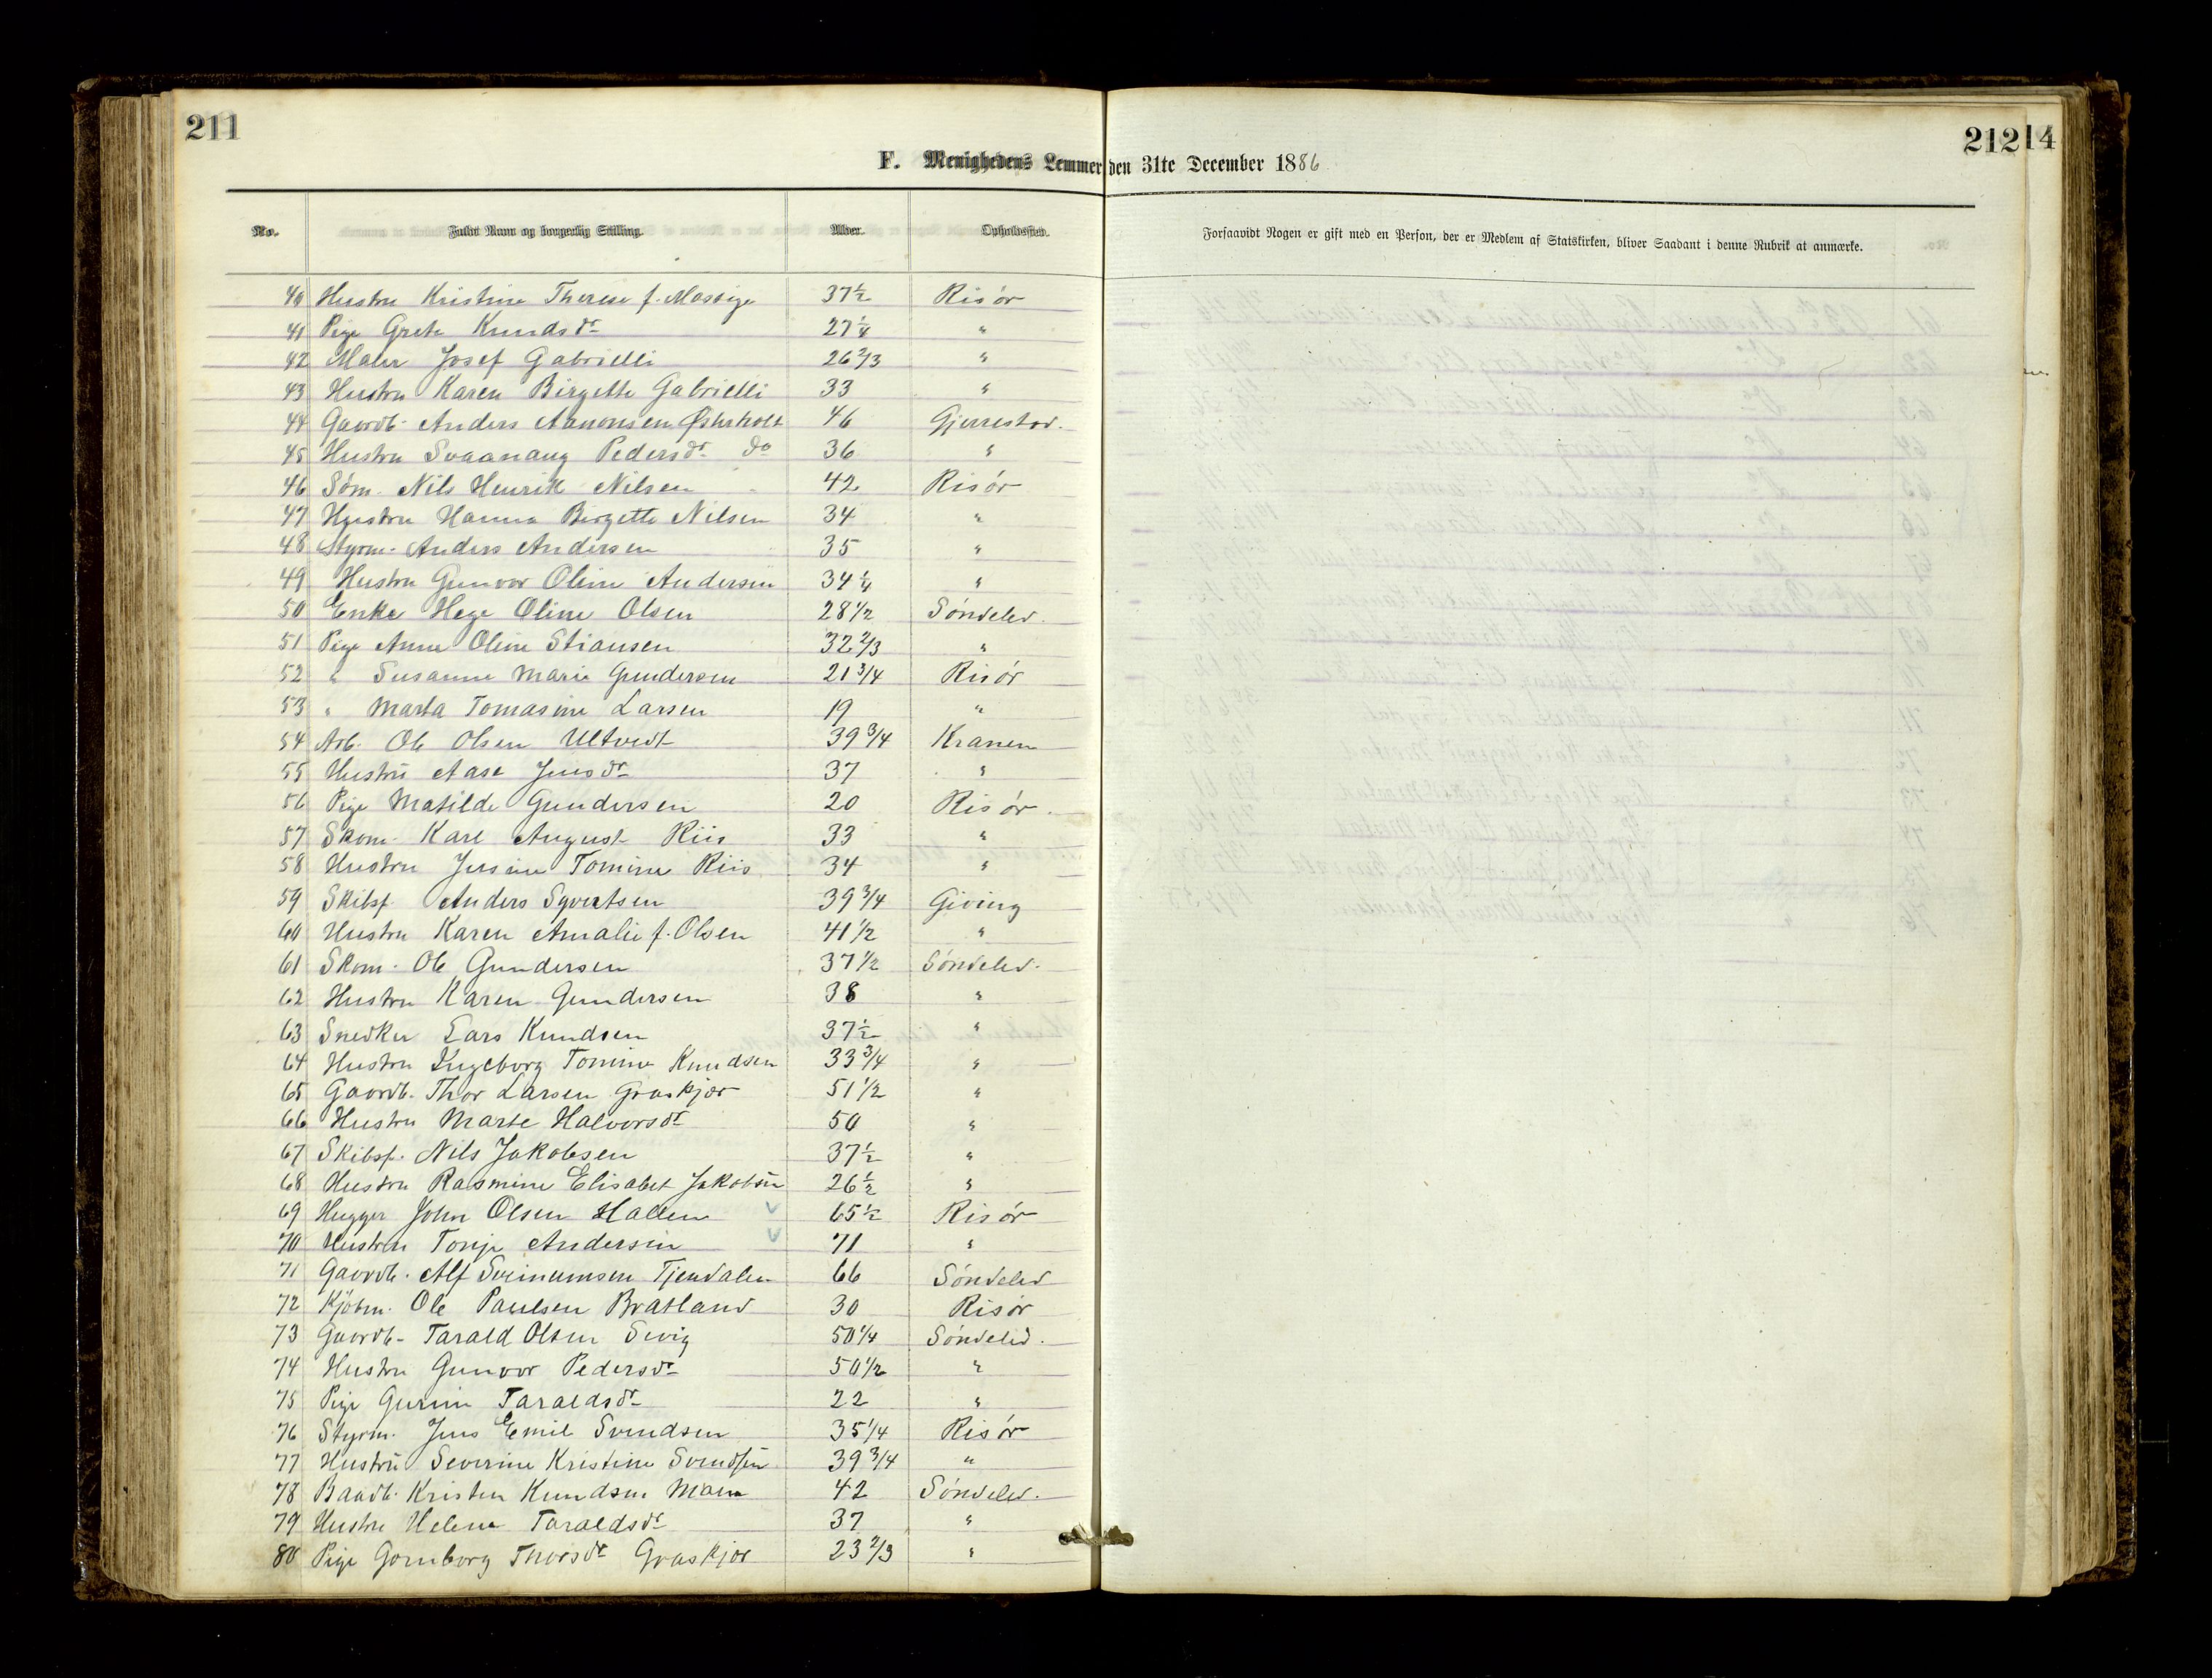 211
21214
F. Menighedens Lemmer den 31te December 1886
No. Fuldt Navn og borgerlig Stilling. Alder. Opholdssted. Forsaavidt Nogen er gift med en Person, der er Medlem af Statskirken, bliver Saadant i denne Rubrik at anmærke.
40 Hustru Kristine Therese f. Massige 37½ Risør
41 Pige Grete Knudsdr 27¼ "
42 Maler Josef Gabrielli 26 2/3 "
43 Hustru Karen Birgette Gabrielli 33 "
44 Gaardb. Anders Aanonsen Østerholt 46 Gjerrestad.
45 Hustru Svaanaug Pedersdr do 36 "
46 Søm. Nils Henrik Nilsen 42 Risør
47 Hustru Hanna Birgette Nilsen 34 "
48 Styrm. Anders Andersen 35 "
49 Hustru Gunvor Oline Andersen 34¼ "
50 Enke Hege Oline Olsen 28 1/2 Søndeled.
51 Pige Anne Oline Stiansen 32 2/3 "
52 " Susanne Marie Gundersen 21 3/4 Risør
53 " Marta Tomasine Larsen 19 "
54 Arb. Ole Olsen Ultvedt 39 3/4 Kranen
55 Hustru Aase Jensdr 37 "
56 Pige Matilde Gundersen 20 Risør.
57 Skom. Karl August Riis 33 "
58 Hustru Jensine Tomine Riis 34 "
59 Skibsf. Anders Syvertsen 39 3/4 Giving
60 Hustru Karen Amalie f. Olsen 41 1/2 "
61 Skom. Ole Gundersen 37 1/2 Søndeled.
62 Hustru Karen Gundersen 38 "
63 Snedker Lars Knudsen 37½ "
64 Hustru Ingeborg Tomine Knudsen 33 3/4 "
65 Gaardb. Thor Larsen Graskjær 51 1/2 "
66 Hustru Marte Halvorsdr 50 "
67 Skibsf. Nils Jakobsen 37½ "
68 Hustru Rasmine Elisabet Jakobsen 26½ "
69 Hugger John Olsen Hallen 65½ Risør
70 Hustru Tonje Andersen 71 "
71 Gaardb. Alf Sveinumsen Tjendalen 66 Søndeled
72 Kjøbm. Ole Paulsen Bratland 30 Risør
73 Gaardb. Tarald Olsen Sevig 50 1/4 Søndeled.
74 Hustru Gunvor Pedersdr 50 1/2 "
75 Pige Gurine Taraldsdr 22 "
76 Styrm. Jens Emil Svendsen 35 1/4 Risør
77 Hustru Severine Kristine Svendsen 39 3/4 "
78 Baadb. Kristen Knudsen Moen 42 Søndeled.
79 Hustru Helene Taraldsdr 37 "
80 Pige Gornborg Thorsdr Graskjær 23 2/3 "